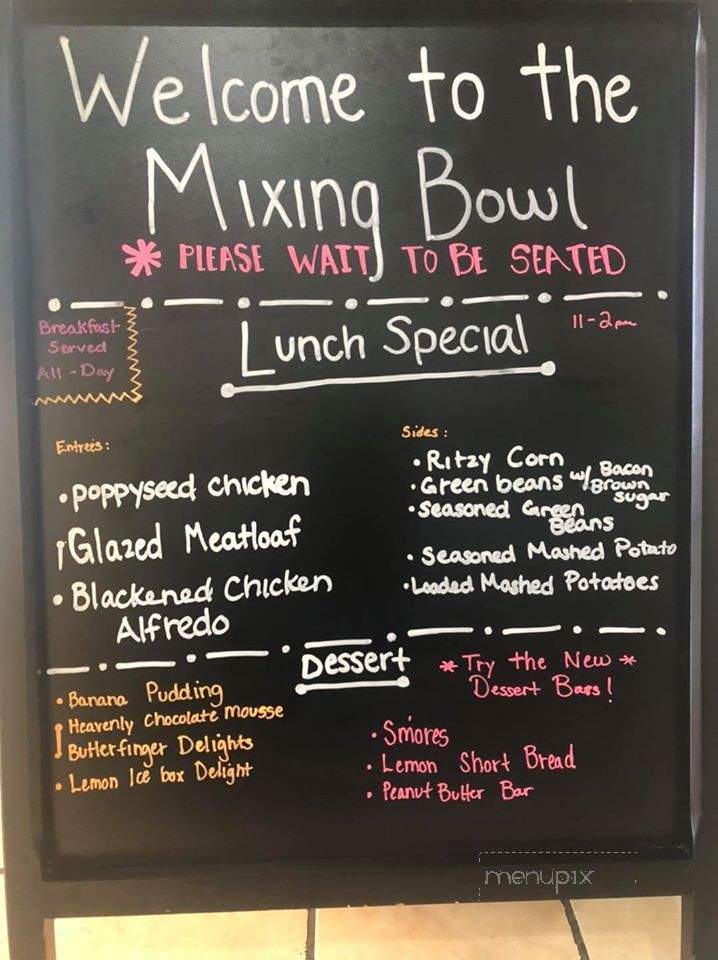 Welcome to the
Mixing Bowl
* PLEASE WAIT TO BE SEATED
Breakfast
Served
All-Day
Lunch Special
11-2pm
Entrees:
• poppyseed chicken
Glazed Meatloaf
• Blackened Chicken
Alfredo
Sides:
• Ritzy Corn
• Green beans w/ Bacon
Brown
sugar
• Seasoned Green
Beans
• Seasoned Mashed Potato
• Loaded Mashed Potatoes
Dessert
• Banana Pudding
Heavenly Chocolate Mousse
Butterfinger Delights
• Lemon Ice box Delight
* Try the New *
Dessert Bars!
• S'mores
• Lemon Short Bread
• Peanut Butter Bar
menupix